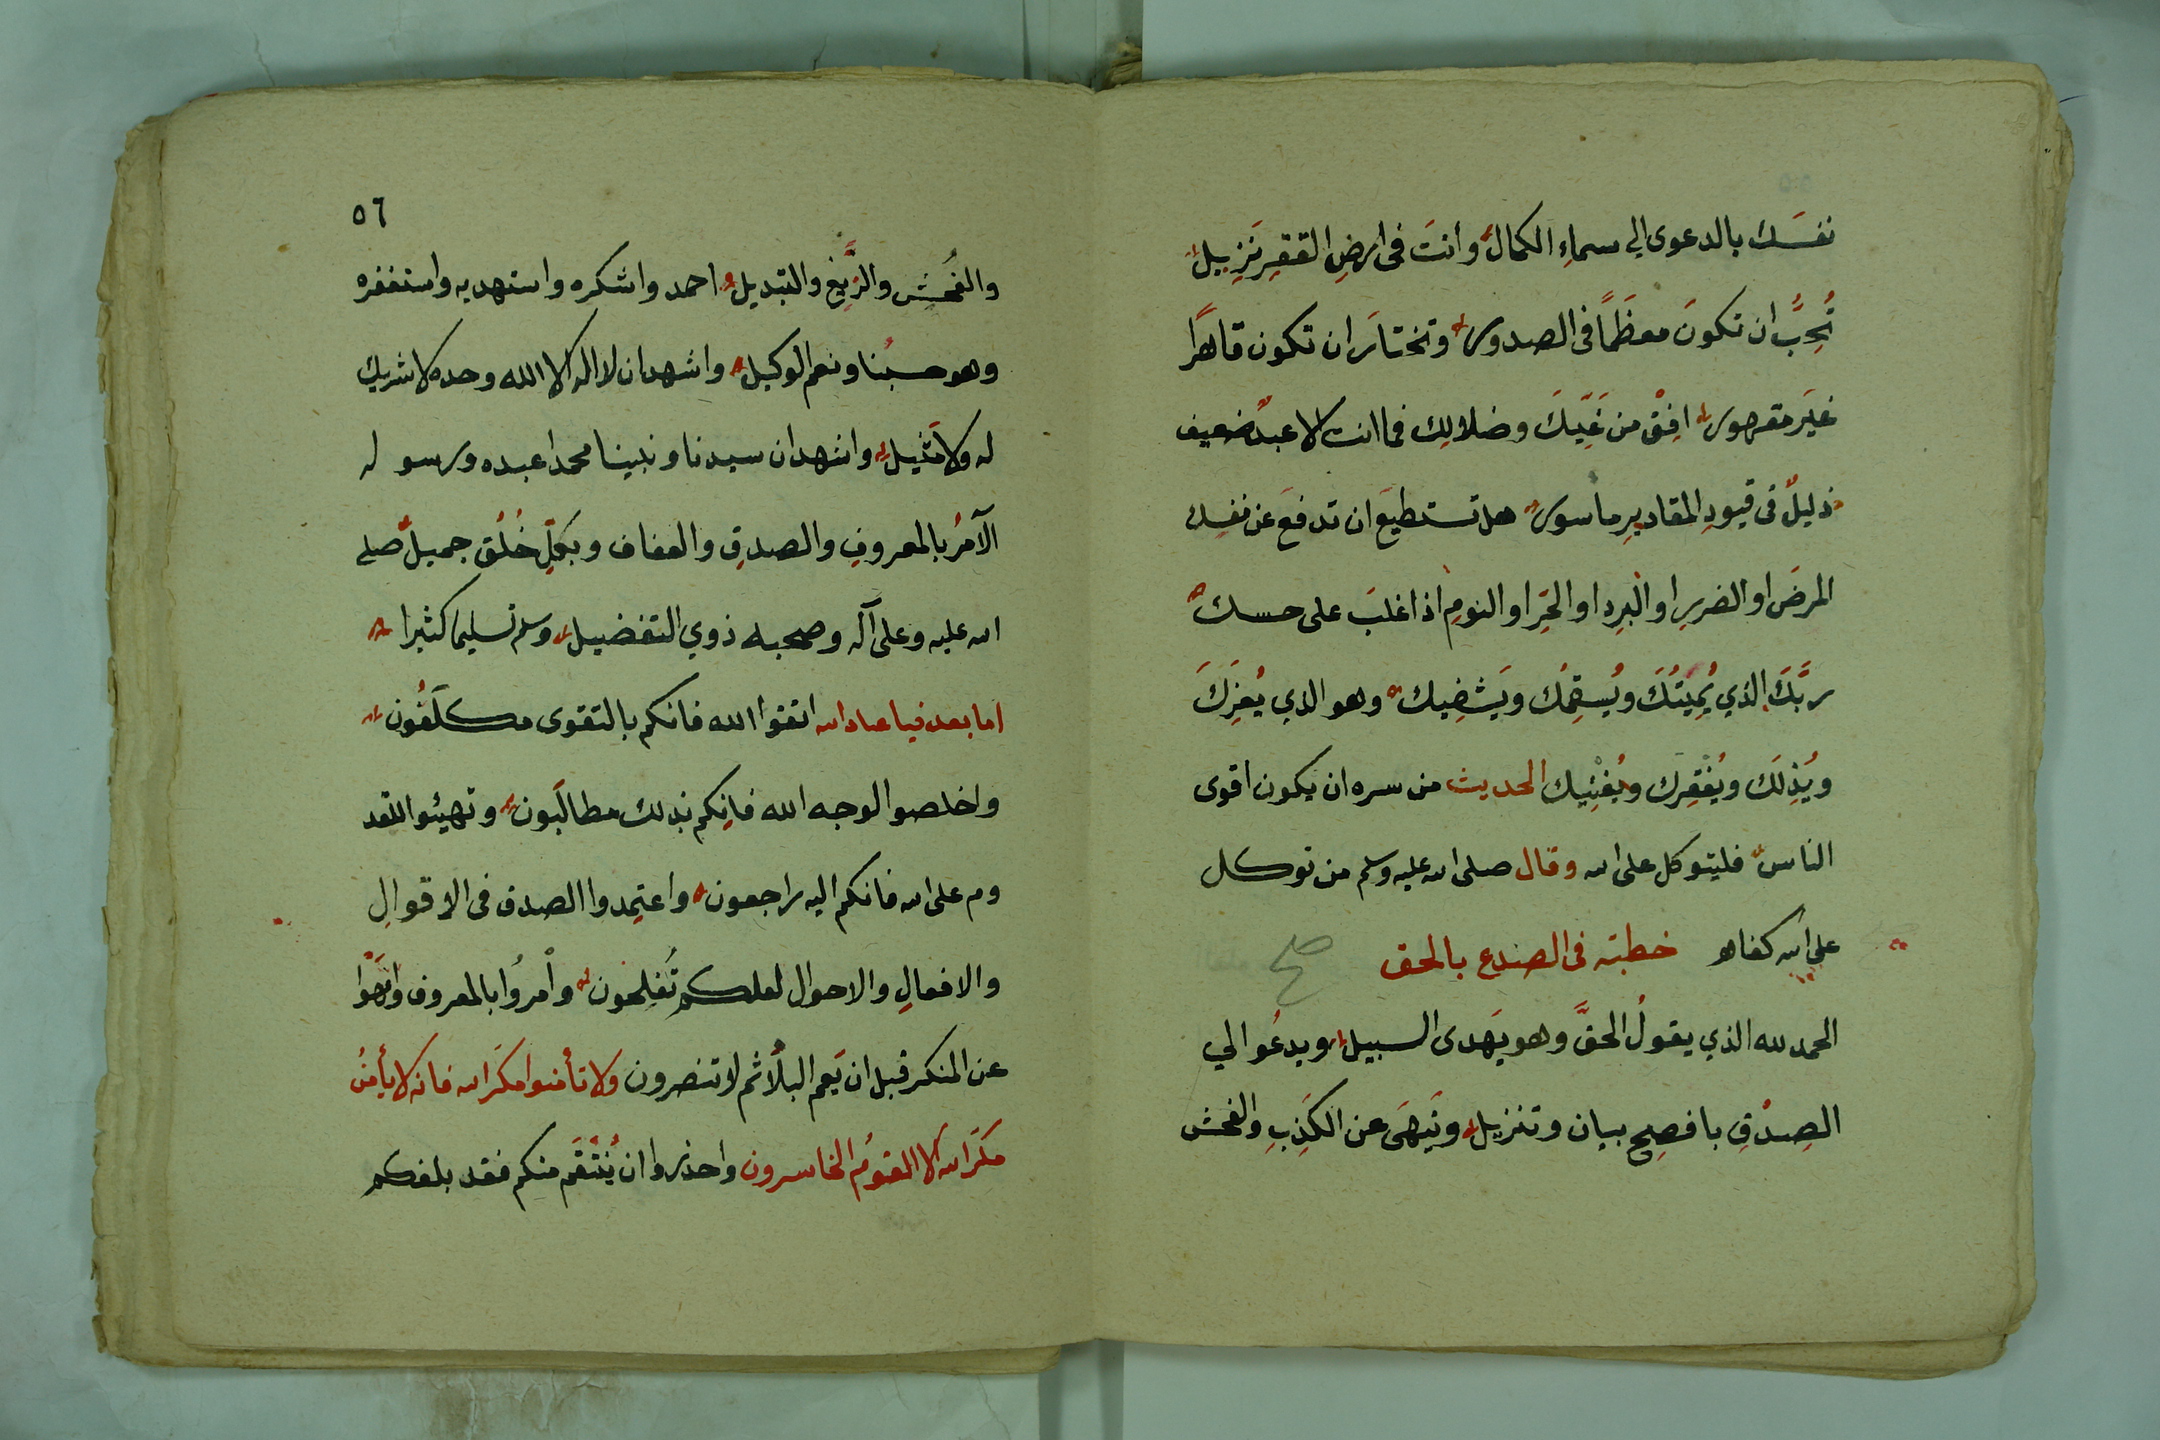 نفسَك بالدعوى الي سماءِ الكمال وانتَ فى ارضِ الفقرِ نزيل
تُحِبُّ ان تكونَ معظَمًا فى الصدور وتختارَ ان تكون قاهرًا
غيَر مقهور افِقْ من غَيِّكَ وضلالِك فما انت الا عبدٌ ضعيف
ذليلٌ فى قيودِ المقاديرِ مأسور هل تستطيعَ ان تدفعَ عن نفسك
المرضَ او الضريرِ او البردِ او الحَرِّ او النومِ اذا غلبَ على حسك
ربَّكَ الذي يُمِيْتُكَ ويُسقِمُك ويَشفِيك وهو الذي يُعِزَكَ
ويُذِلَكَ ويُفْقِرَك ويُغْنِيك الحديث من سره ان يكون اقوى
الناس فليتوكل على الله وقال صلى الله عليه وسلم من توكل
على الله كفاه خطبته فى الصدع بالحق صح
الحمد لله الذي يقولُ الحقَّ وهو يَهدى السبيل ويدعُو الي
الصِدْقِ بافصِحِ بيان وتنزيل ويَنهَى عن الكَذِبِ والفحش
٥٦
والفُحش والزَّيغ والتبديل احمد واشكره واستهديه واستغفره
وهو حسبُنا ونعم الوكيل واشهد ان لا اله الا الله وحده لا شريك
له ولا مَثيل واشهد ان سيدنا ونبينا محمدا عبده ورسوله
الآمرُ بالمعروفِ والصدقِ والعفاف وبكلِّ خُلُقٍ جميلٍ صلى
الله عليه وعلى آله وصحبه ذوي التفضيل وسلم تسليما كثيرا
اما بعد فيا عباد الله اتقوا الله فانكم بالتقوى مكلَّفُون
واخلصوا لوجه الله فانِكم بذلك مطالَبون وتهيئوا للقد
وم على الله فانكم اليه راجعون واعتمِدوا الصدق فى الاقوالِ
والافعالِ والاحوال لعلكم تُفلحون وأمرُوا بالمعروف وانْهَوْا
عن المنكر قبل ان يَعم البلآ ثم لا تنصرون ولا تأمنوا مكَر الله فانه لا يأمنُ
مَكَر الله الا القومُ الخاسرون واحذروا ان يُنْتَقَم منكم فقد بلغكم